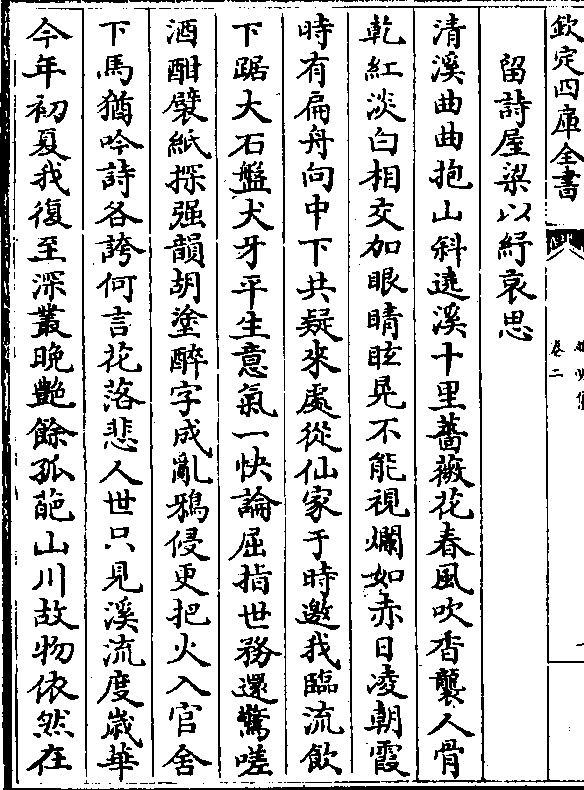 欽定四庫全書
卷二
留詩屋梁以紓哀思
清溪曲曲抱山斜遶溪十里薔薇花春風吹香襲人骨
乾紅淡白相交加眼睛眩晃不能視爛如赤日凌朝霞
時有扁舟向中下共疑來處從仙家于時邀我臨流飲
下踞大石盤犬牙平生意氣一快論屈指世務還驚嗟
酒酣襞紙探强韻胡塗醉字成亂鴉侵更把火入官舍
下馬猶吟詩各誇何言花落悲人世只見溪流度歳華
今年初夏我復至深叢晩艶餘孤葩山川故物依然在